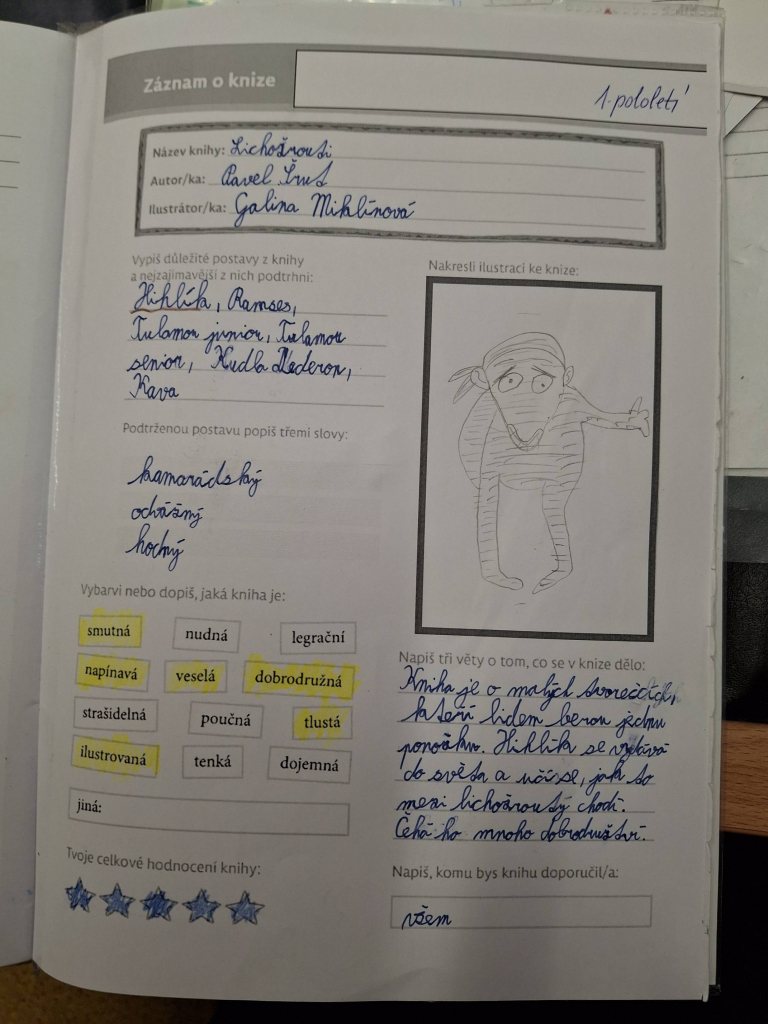 Záznam o knize
1. pololetí
Název knihy: Lichožrouti
Autor/ka: Pavel Šrut
Ilustrátor/ka: Galina Miklínová
Vypiš důležité postavy z knihy
a nejzajímavější z nich podtrhni:
Hihlík, Ramses,
Tulamor junior, Tulamor
senior, Kudla Dederon,
Kava
Podtrženou postavu popiš třemi slovy:
kamarádský
odvážný
hodný
Vybarvi nebo dopiš, jaká kniha je:
smutná nudná legrační
napínavá veselá dobrodružná
strašidelná poučná tlustá
ilustrovaná tenká dojemná
jiná:
Tvoje celkové hodnocení knihy:
Nakresli ilustraci ke knize:
Napiš tři věty o tom, co se v knize dělo:
Kniha je o malých tvorečcích,
kteří lidem berou jednu
ponožku. Hihlík se vydává
do světa a učí se, jak to
mezi lichožrouty chodí.
Čeká ho mnoho dobrodružství.
Napiš, komu bys knihu doporučil/a:
všem